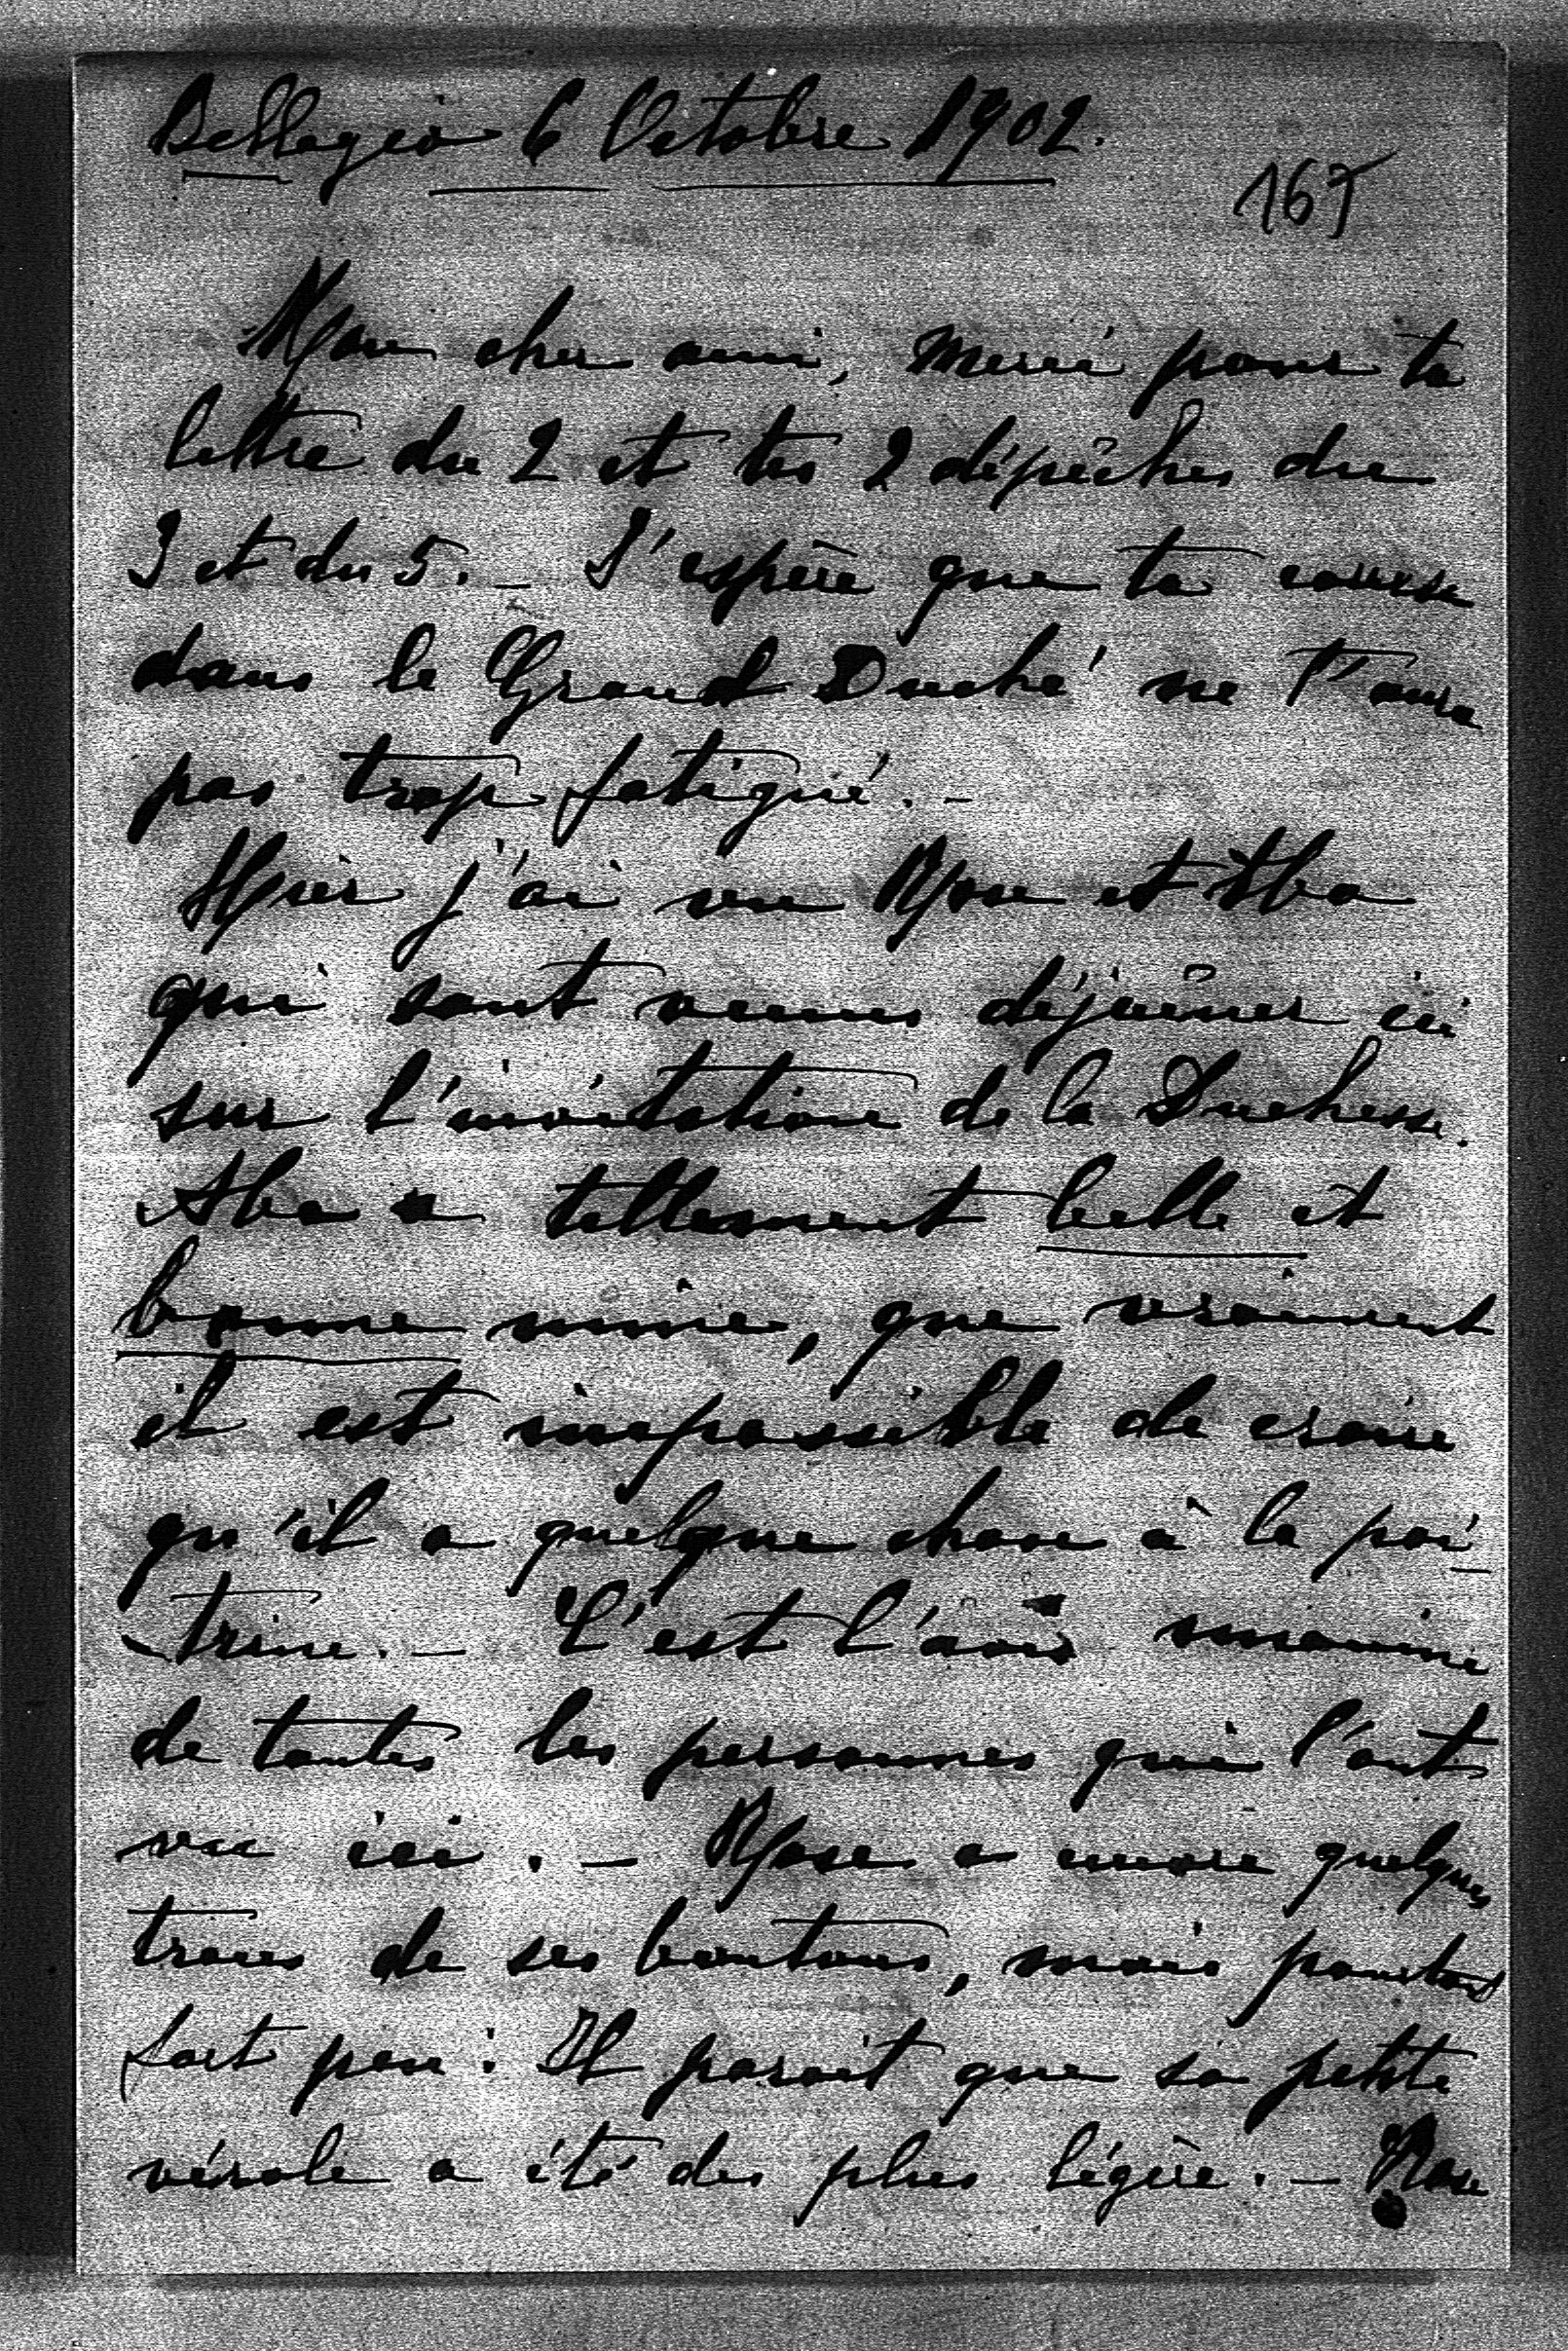 Bellagio 6 Octobre 1902.
167
Mon cher ami, merci pour ta
lettre du 2 et tes 2 dépêches du
3 et du 5. _ J'espère que ta course
dans le Grand Duché ne t'aura
pas trop fatigué. _
Hier j'ai vu Rose et Aba
qui sont venus déjeûner ici
sur l'invitation de la Duchesse.
Aba a tellement belle et
bonne mine, que vraiment
il est impossible de croire
qu'il a quelque chose à la poi_
_trine. _ C'est l'avis unanime
de toutes les personnes qui l'ont
vu ici. _ Rose a encore quelques
traces de ses boutons, mais pourtant
fort peu. Il parait que sa petite
vérole a été des plus légère. _ Rose